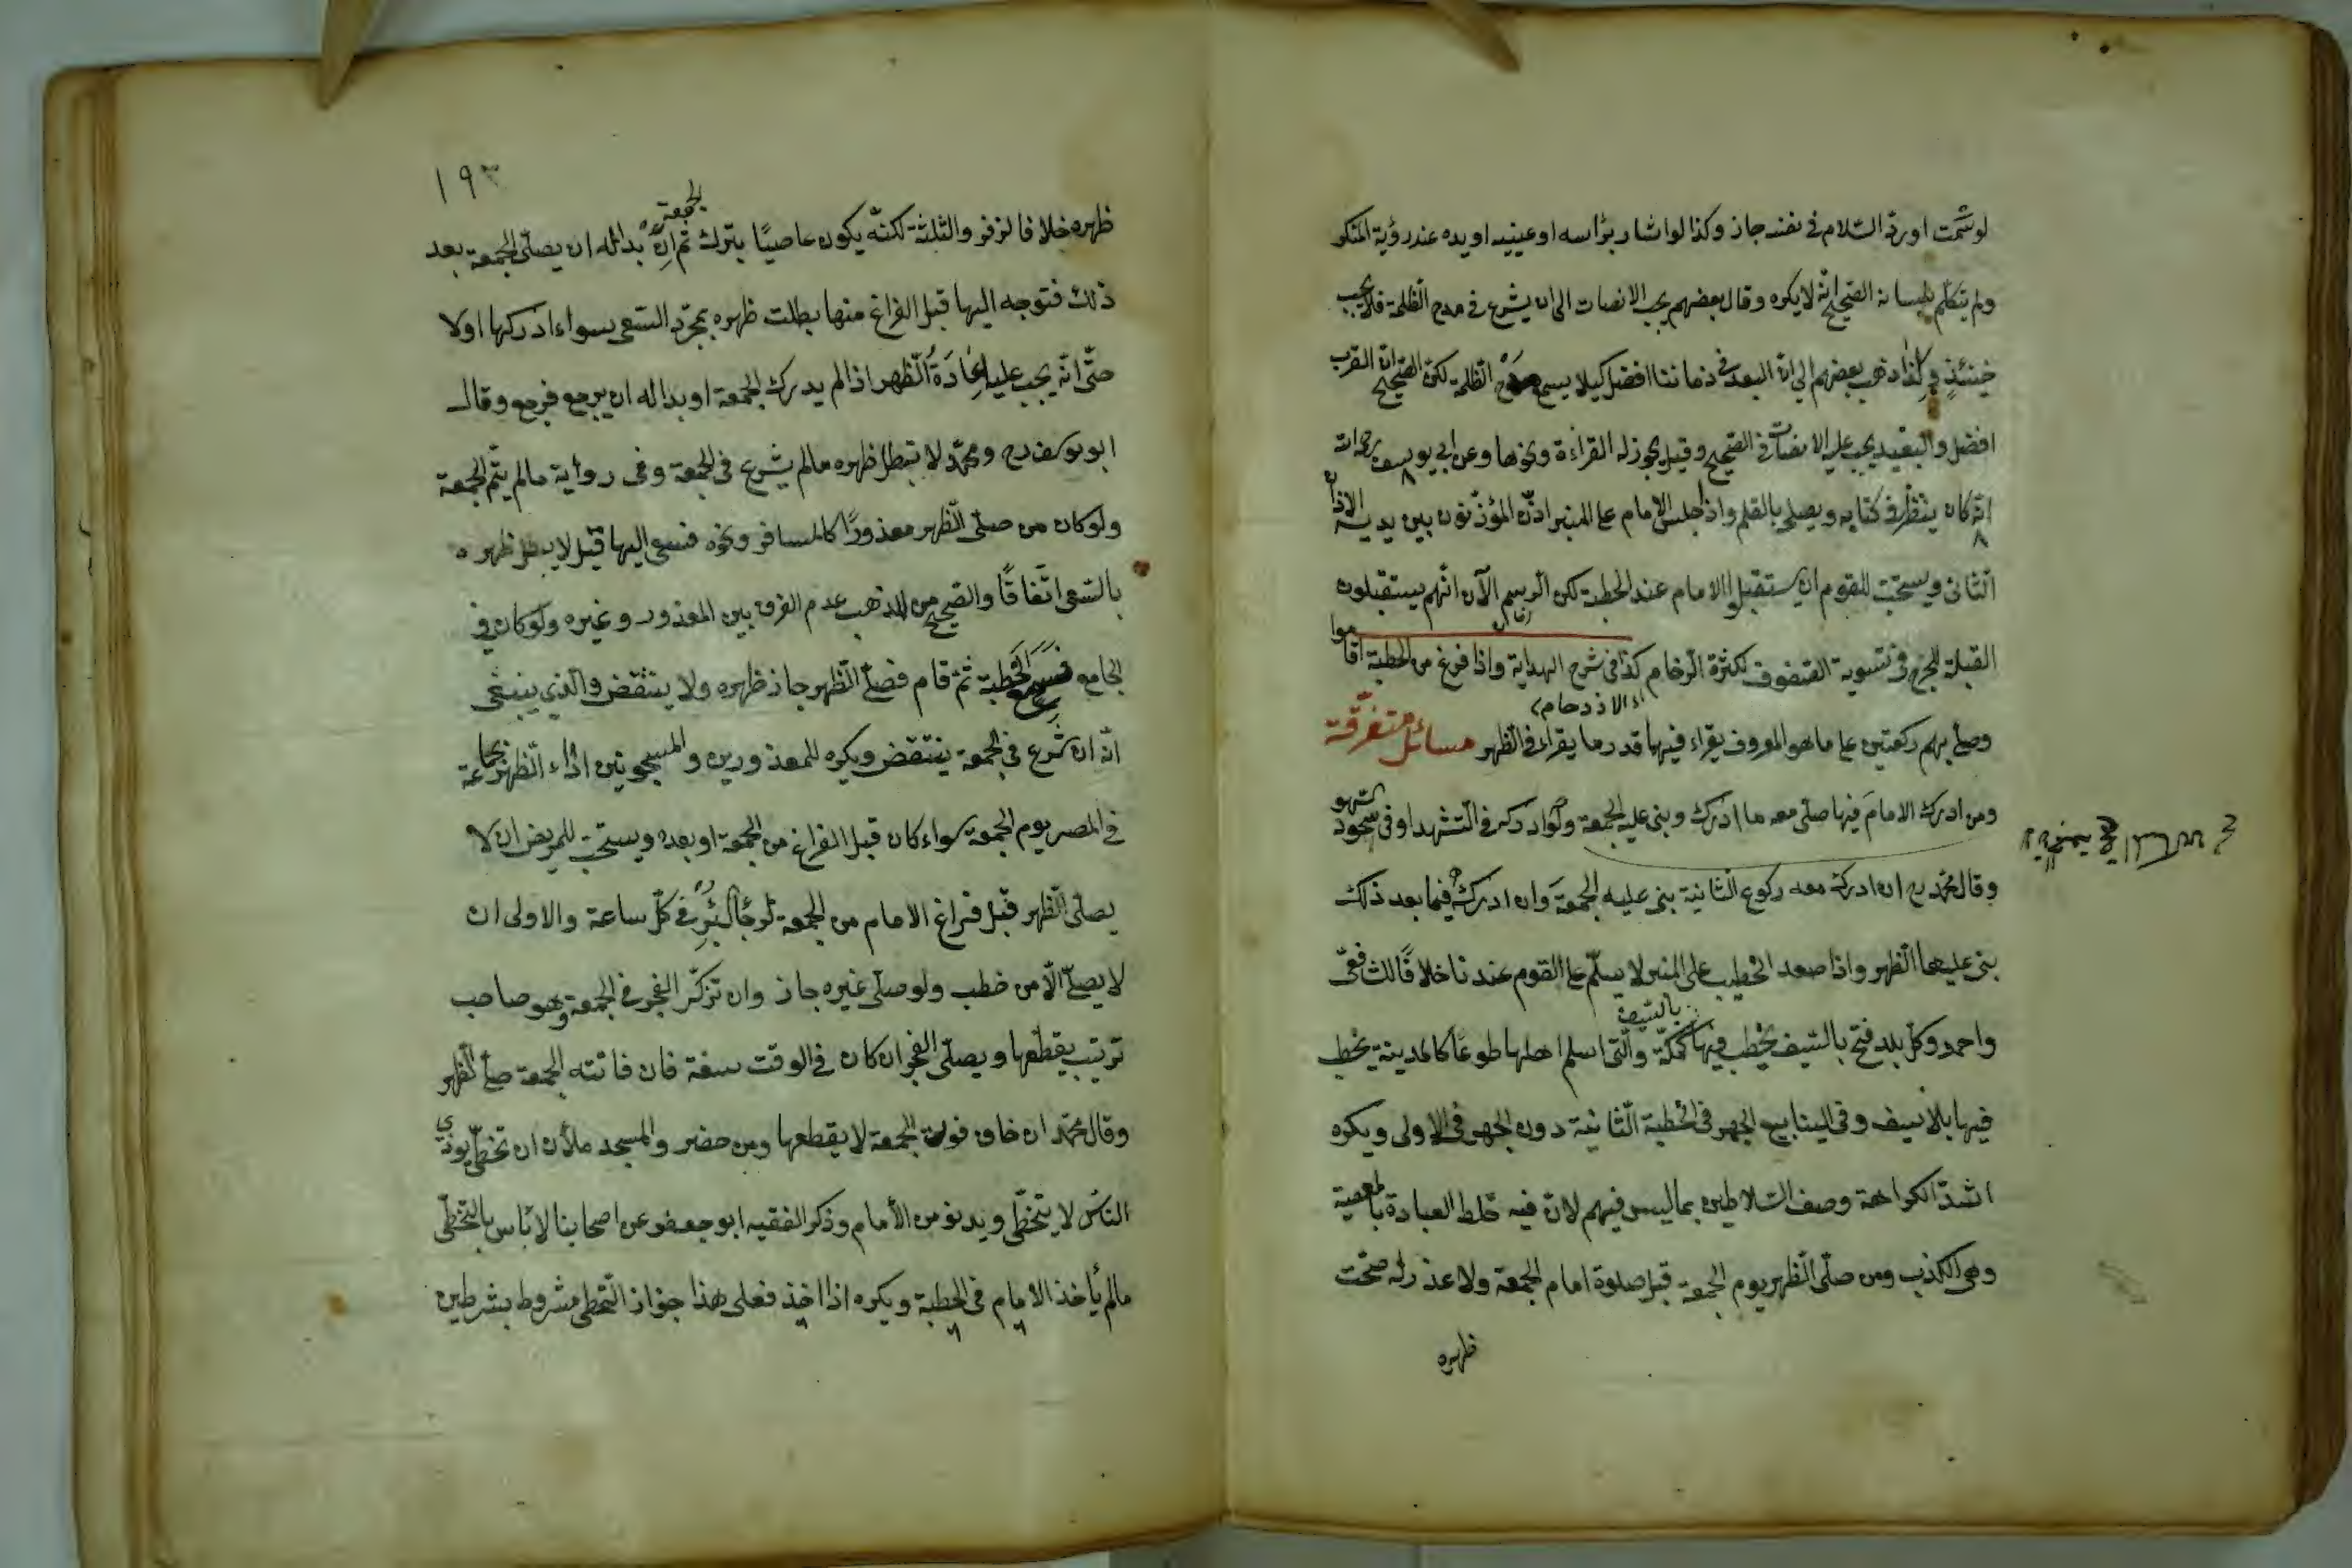 لو شمّت او ردّ السّلام فى نفسه جاز وكذا لو اشار برأسه او عينيه او يده عند رؤية المنكر
ولم يتكلّم بلسانه الصّحيح انّه لا يكره وقال بعضهم يجب الانصات الى ان يشرع فى مدح الظلمة فلا يجب
حينئذٍ وكذا ذهب بعضهم الى انّ البعد فى زماننا افضل كيلا يسمع مدح الظلمة لكن الصّحيح انّ القرب
افضل والبعيد يجب عليه الانصات فى الصّحيح وقيل يجوز له القراءة ونحوها وعن ابى يوسف
انّه كان ينظر فى كتابه ويصلح بالقلم واذا جلس الامام على المنبر اذّن المؤذّنون بين يديه الاذان
الثّانى ويستحبّ للقوم ان يستقبلوا الامام عند الخطبة لكن الرسم الآن انّهم يستقبلون
القبلة للحرج فى تسوية الصّفوف لكثرة الزحام كذا فى شرح الهداية واذا فرغ من الخطبة اقاموا
اى الازدحام
وصلّى بهم ركعتين على ما هو المعروف يقراء فيها قدر ما يقراء فى الظهر مسائل متفرّقة
ومن ادرك الامام فيها صلّى معه ما ادرك وبنى عليه الجمعة ولو ادركه فى التّشهد او فى سجود السّهو
وقال محمّد رح ان ادرك معه ركوع الثّانية بنى عليه الجمعة وان ادركه فيما بعد ذلك
بنى عليها الظهر واذا صعد الخطيب على المنبر لا يسلّم على القوم عندنا خلافًا للشّافعىّ
واحمد وكلّ بلد فتح بالسّيف يخطب فيها بالسّيف كمكّة والّتى اسلم اهلها طوعًا كالمدينة يخطب
فيها بلا سيف وفى الينابيع الجهر فى الخطبة الثّانية دون الجهر فى الاولى ويكره
اشدّ الكراهة وصف السّلاطين بما ليس فيهم لانّ فيه خلط العبادة بالمعصية
وهى الكذب ومن صلّى الظهر يوم الجمعة قبل صلوة امام الجمعة ولا عذر له صحّت
ظهره
١٩٣
ظهره خلافا لزفر والثلثة لكنّه يكون عاصيًا بترك الجمعة ثم ان بدا له ان يصلّى الجمعة بعد
ذلك فتوجه اليها قبل الفراغ منها بطلت ظهره بمجرّد السّعى سواء ادركها اولا
حتّى انّه يجب عليه اعادة الظهر اذا لم يدرك الجمعة او بدا له ان يرجع فرجع وقال
ابو يوسف رح ومحمّد لا تبطل ظهره مالم يشرع فى الجمعة وفى رواية مالم يتمّ الجمعة
ولو كان من صلّى الظهر معذورًا كالمسافر ونحوه فسعى اليها قيل لا يبطل ظهره
بالسّعى اتّفاقًا والصّحيح من المذهب عدم الفرق بين المعذور وغيره ولو كان فى
الجامع فسمع الخطبة ثمّ قام فصلّى الظهر جاز ظهره ولا ينتقض والّذى ينبغى
انّه ان شرع فى الجمعة ينتقض ويكره للمعذورين والمسجونين اداء الظهر بجماعة
فى المصر يوم الجمعة سواء كان قبل الفراغ من الجمعة او بعده ويستحبّ للمريض ان لا
يصلّى الظهر قبل فراغ الامام من الجمعة لرجاء البرء فى كلّ ساعة والاولى ان
لا يصلّى الّا من خطب ولو صلّى غيره جاز وان تذكّر الفجر فى الجمعة وهو صاحب
ترتيب يقطعها ويصلّى الفجر ان كان فى الوقت سعة فان فاتته الجمعة صلّى الظهر
وقال محمّد ان خاف فوت الجمعة لا يقطعها ومن حضر والمسجد ملأن ان تخطّى يوذى
النّاس لا يتخطّى ويدنو من الأمام وذكر الفقيه ابو جعفر عن اصحابنا لا بأس بالتّخطّى
مالم يأخذ الامام فى الخطبة ويكره اذا اخذ فعلى هذا جواز التّخطى مشروط بشرطين